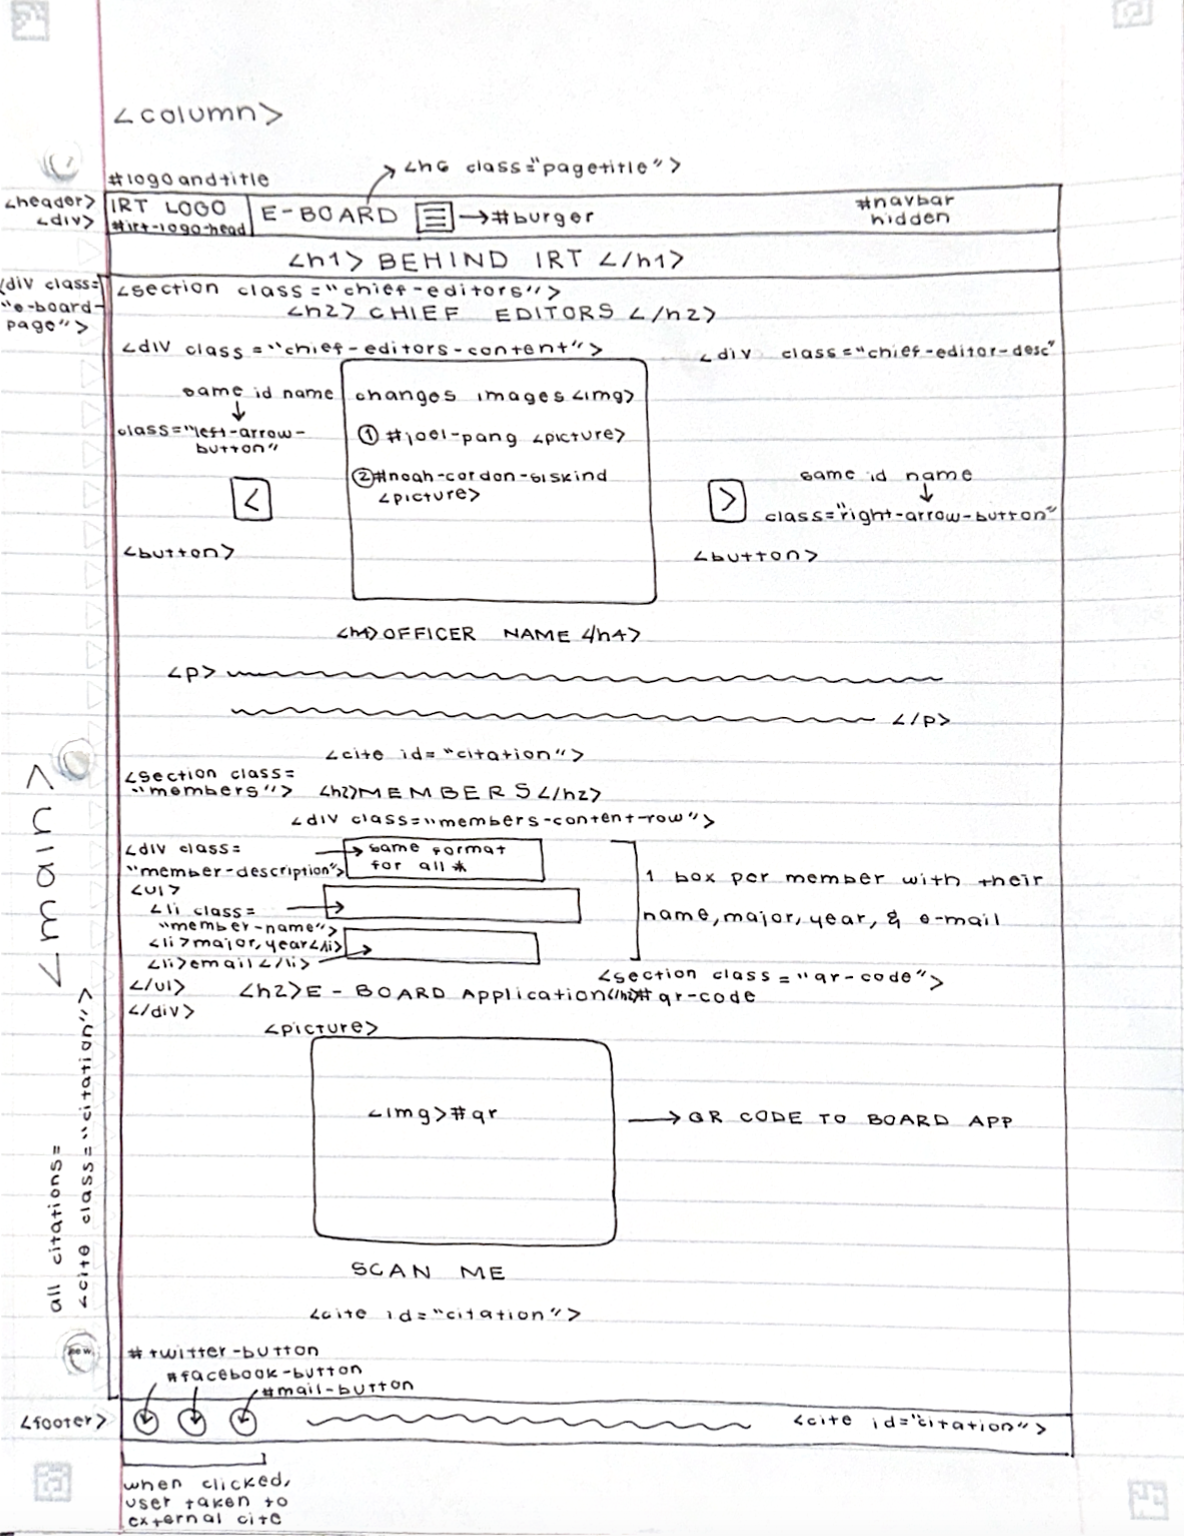 <column>
#logoandtitle
<h6 class="pagetitle">
<header>
<div>
IRT LOGO
#irt-logo-head
E-BOARD
→#burger
#navbar
hidden
<h1> BEHIND IRT </h1>
<div class=
"e-board-
page">
<section class="chief-editors">
<h2> CHIEF EDITORS </h2>
<div class="chief-editors-content">
<div class="chief-editor-desc"
same id name
class="left-arrow-
button"
<
<button>
changes images <img>
① #joel-pang <picture>
② #noah-cordon-siskind
<picture>
same id name
class="right-arrow-button"
>
<button>
<h4> OFFICER NAME </h4>
<p>
</p>
<cite id="citation">
<main>
<section class=
"members">
<h2>MEMBERS</h2>
<div class="members-content-row">
<div class=
"member-description">
same format
for all *
<ul>
<li class=
"member-name">
<li>major, year</li>
<li>email</li>
</ul>
</div>
1 box per member with their
name, major, year, & e-mail
<section class="qr-code">
<h2>E-BOARD Application</h2># qr-code
<picture>
<img>#qr
→ QR CODE TO BOARD APP
SCAN ME
<cite id="citation">
all citations=
<cite class="citation">
#twitter-button
#facebook-button
#mail-button
<footer>
<cite id="citation">
when clicked,
user taken to
external cite